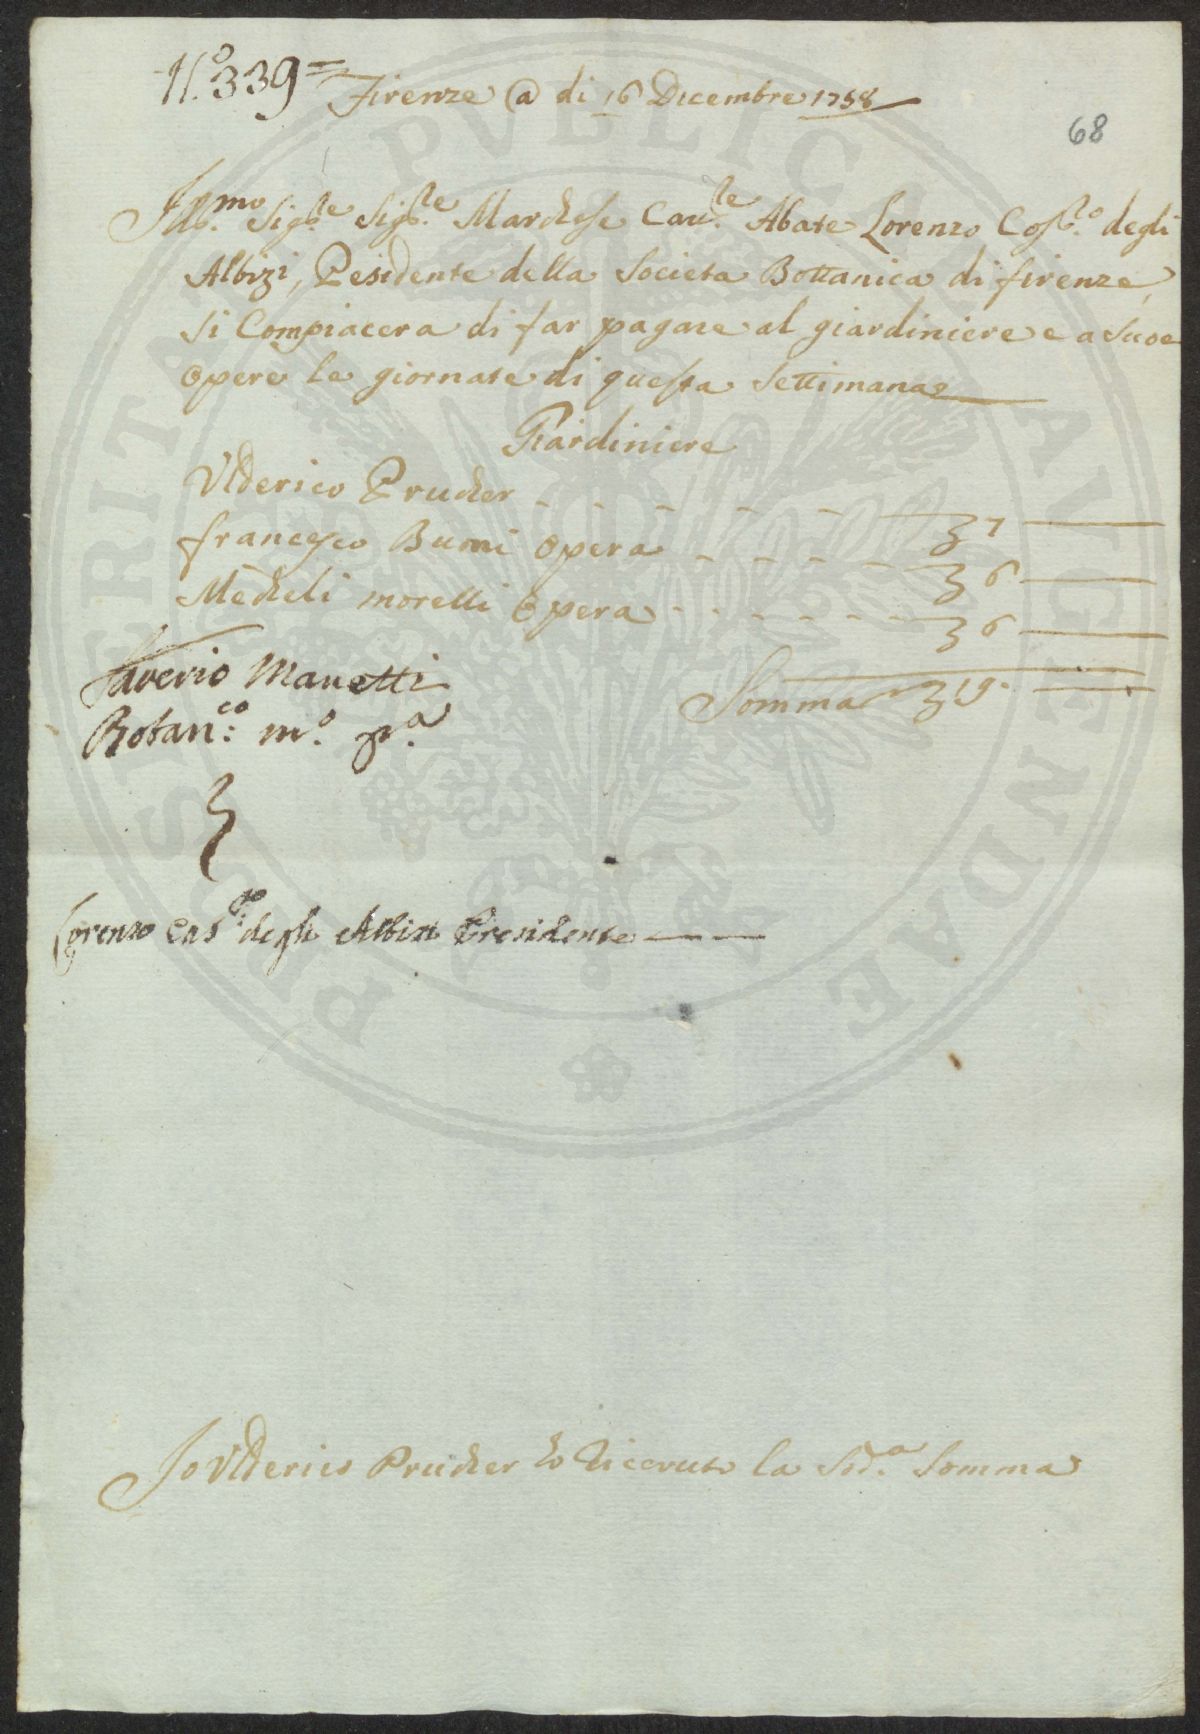 N.º 339=
Firenze @ di 16 Dicembre 1758
68
Ill.mo Sig.re Sig.re Marchese Cau.re Abate Lorenzo Cos.mo degli
Albizi, Pesidente della Societa Bottanica di firenze,
si Compiacera di far pagare al giardiniere e a Suoe
Opere le giornate di questa Settimana
Giardiniere
Vlderico Prucher - - - - - 7 —
francesco Buoni Opera - - - - 6 —
Micheli morelli Opera - - - - - - 6 —
Somma 19. —
Saverio Manetti
Botan.co m.o p.a
Lorenzo Cos.mo degli Albizi Presidente —
Io Vlderico Prucher ho Riceuuto la Sod.a Somma
PROSPERITATI PVBLICAE AVGENDAE